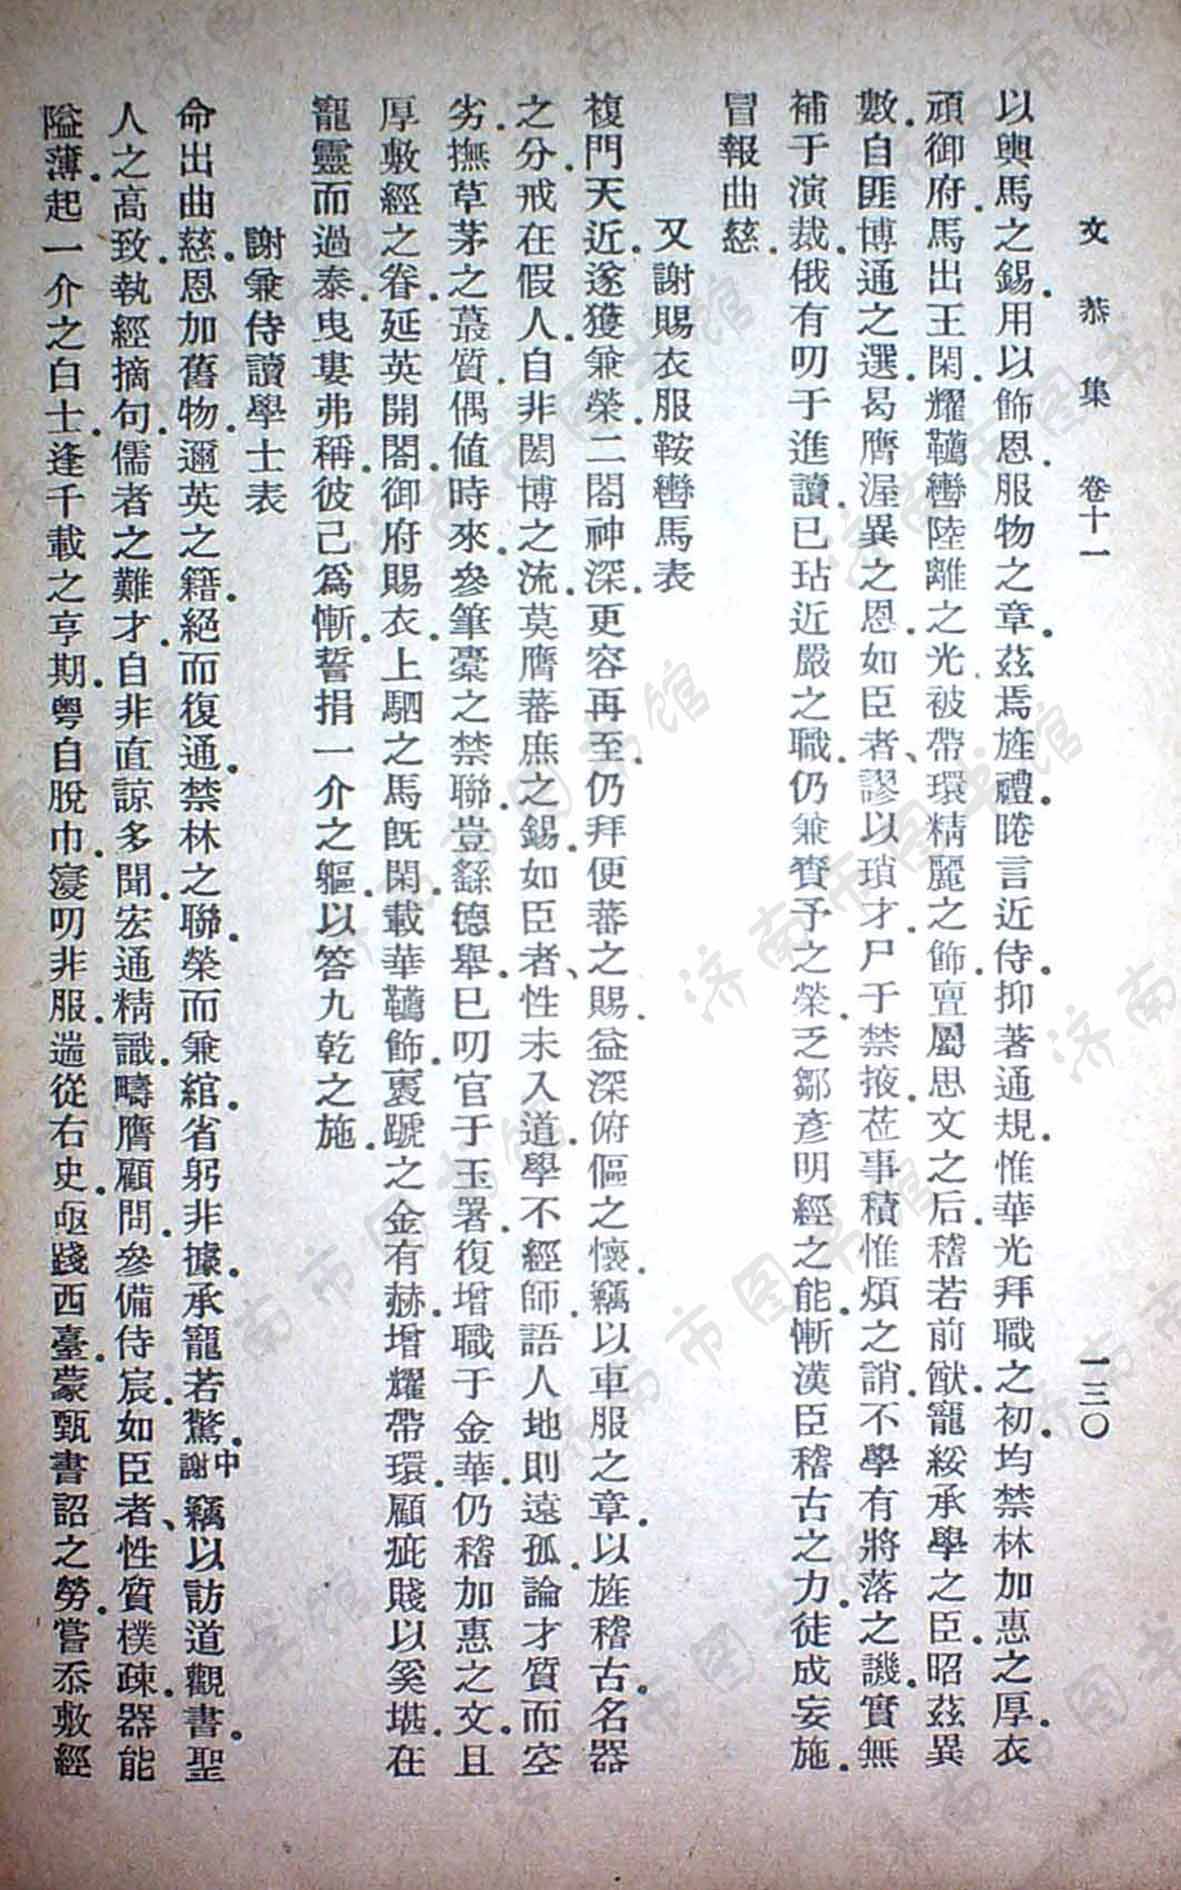 文恭集 卷十一 一三〇
以輿馬之錫.用以飾恩.服物之章.茲焉旌禮.睠言近侍.抑著通規.惟華光拜職之初.均禁林加惠之厚.衣
頒御府.馬出王閑.耀韉轡陸離之光.被帶環精麗之飾.亶屬思文之后.稽若前猷.寵綏承學之臣.昭茲異
數.自匪博通之選.曷膺渥異之恩.如臣者、謬以瑣才.尸于禁掖.莅事積惟煩之誚.不學有將落之譏.實無
補于演裁.俄有叨于進讀.已玷近嚴之職.仍兼賚予之榮.乏鄒彥明經之能.慚漢臣稽古之力.徒成妄施.
冒報曲慈.
又謝賜衣服鞍轡馬表
複門天近.遂獲兼榮.二閣神深.更容再至.仍拜便蕃之賜.益深俯傴之懷.竊以車服之章.以旌稽古.名器
之分.戒在假人.自非閎博之流.莫膺蕃庶之錫.如臣者、性未入道.學不經師.語人地則遠孤.論才質而空
劣.撫草茅之蕞質.偶值時來.參筆橐之禁聯.豈繇德舉.已叨官于玉署.復增職于金華.仍稽加惠之文.且
厚敷經之眷.延英開閤.御府賜衣.上駟之馬旣閑.載華韉飾.褭蹏之金有赫.增耀帶環.顧疵賤以奚堪.在
寵靈而過泰.曳婁弗稱.彼己爲慚.誓捐一介之軀.以答九乾之施.
謝兼侍讀學士表
命出曲慈.恩加舊物.邇英之籍.絕而復通.禁林之聯.榮而兼綰.省躬非據.承寵若驚.中謝竊以訪道觀書.聖
人之高致.執經摘句.儒者之難才.自非直諒多聞.宏通精識.疇膺顧問.參備侍宸.如臣者、性質樸疎.器能
隘薄.起一介之白士.逢千載之亨期.粵自脫巾.寖叨非服.遄從右史.亟踐西臺.蒙甄書詔之勞.嘗忝敷經